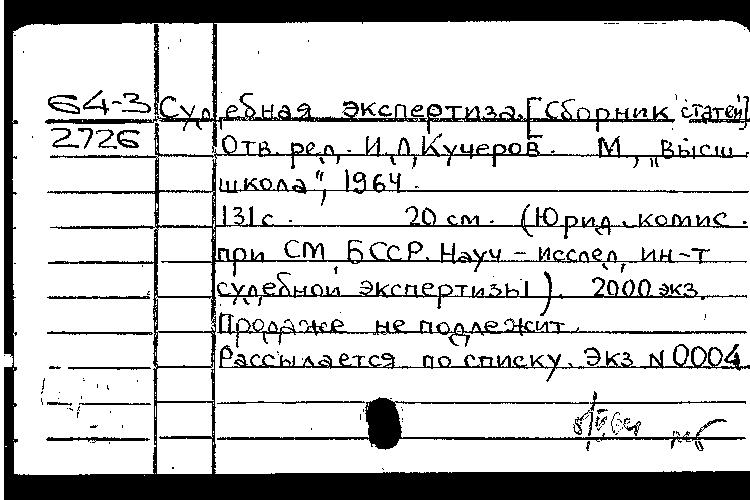 64-3
2726
Судебная экспертиза. [Сборник статей]
Отв. ред. И.Л. Кучеров. М., „Высш.
школа", 1964.
131 с. 20 см. (Юрид. комис.
при СМ БССР. Науч-исслед. ин-т
судебной экспертизы). 2000 экз.
Продаже не подлежит.
Рассылается по списку. Экз N 0004